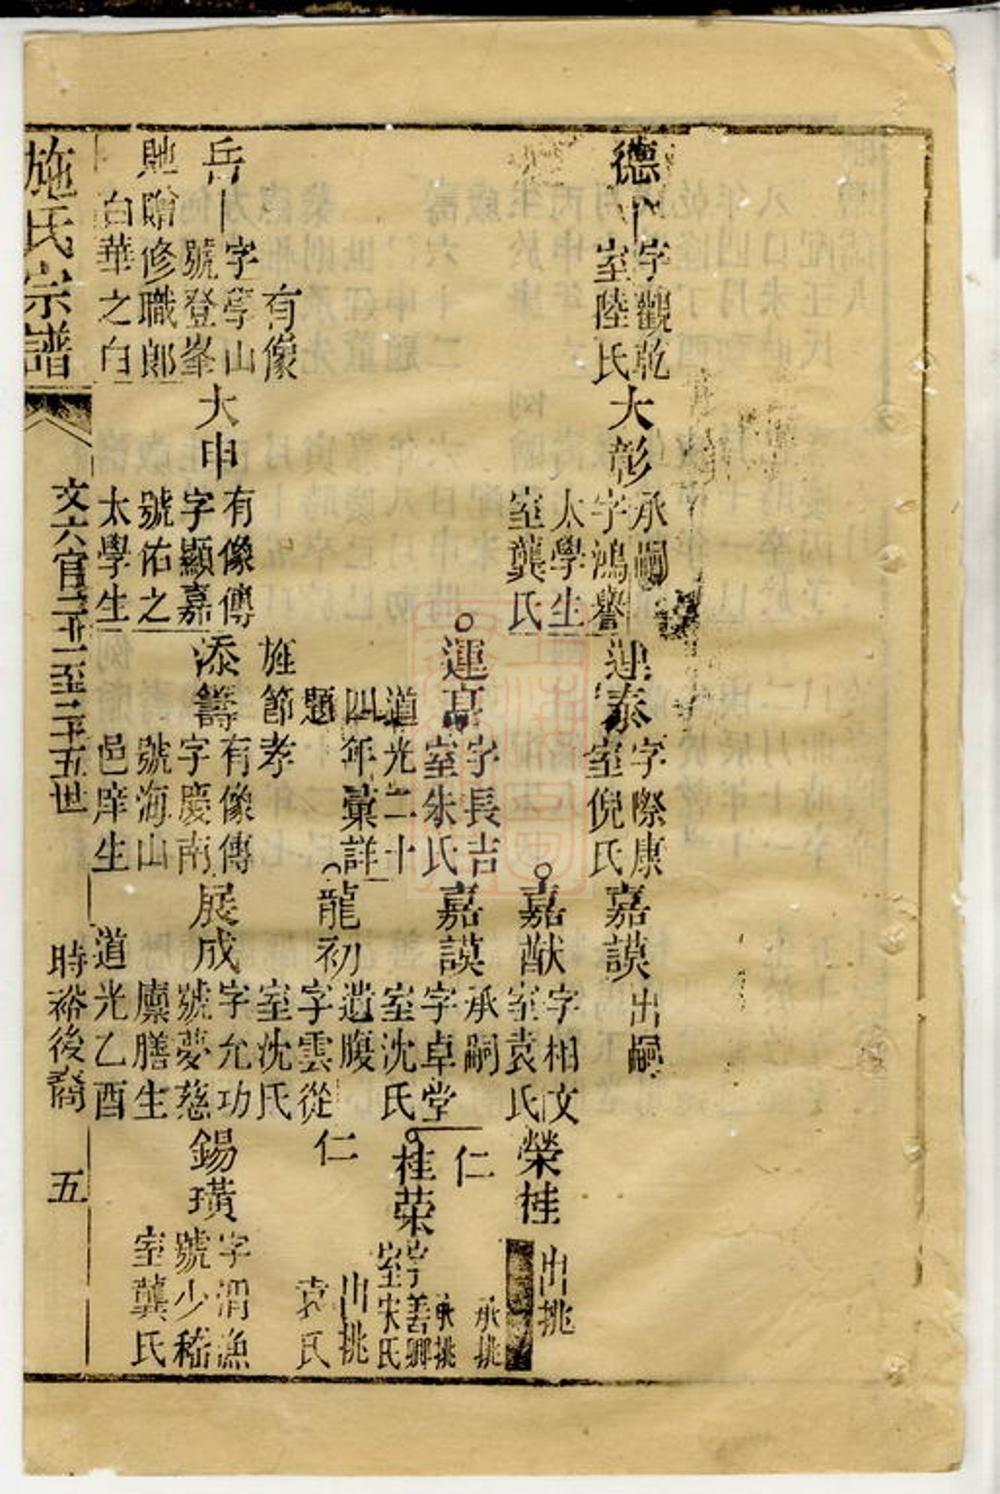 德
字觀乾
室陸氏
大彰
承嗣
字鴻譽
太學生
室龔氏
運泰
字際康
室倪氏
嘉謨
出嗣
嘉猷
字相文
室袁氏
榮桂
出挑
運亨
字長吉
室朱氏
嘉謨
承嗣
字卓堂
室沈氏
仁
承挑
桂榮
承挑
字善卿
室宋氏
道光二十
四年彙詳
題
旌節孝
龍初
遺腹
字雲從
室沈氏
仁
出挑
袁氏
岳
有像
字學山
號登峯
貤贈修職郎
白華之白
大申
有像傳
字顯嘉
號佑之
太學生
添籌
有像傳
字慶南
號海山
邑庠生
展成
字允功
號夢慈
廩膳生
道光乙酉
錫璜
字渭漁
號少嵇
室龔氏
施氏宗譜
文六官二十一至二十五世
時裕後裔
五